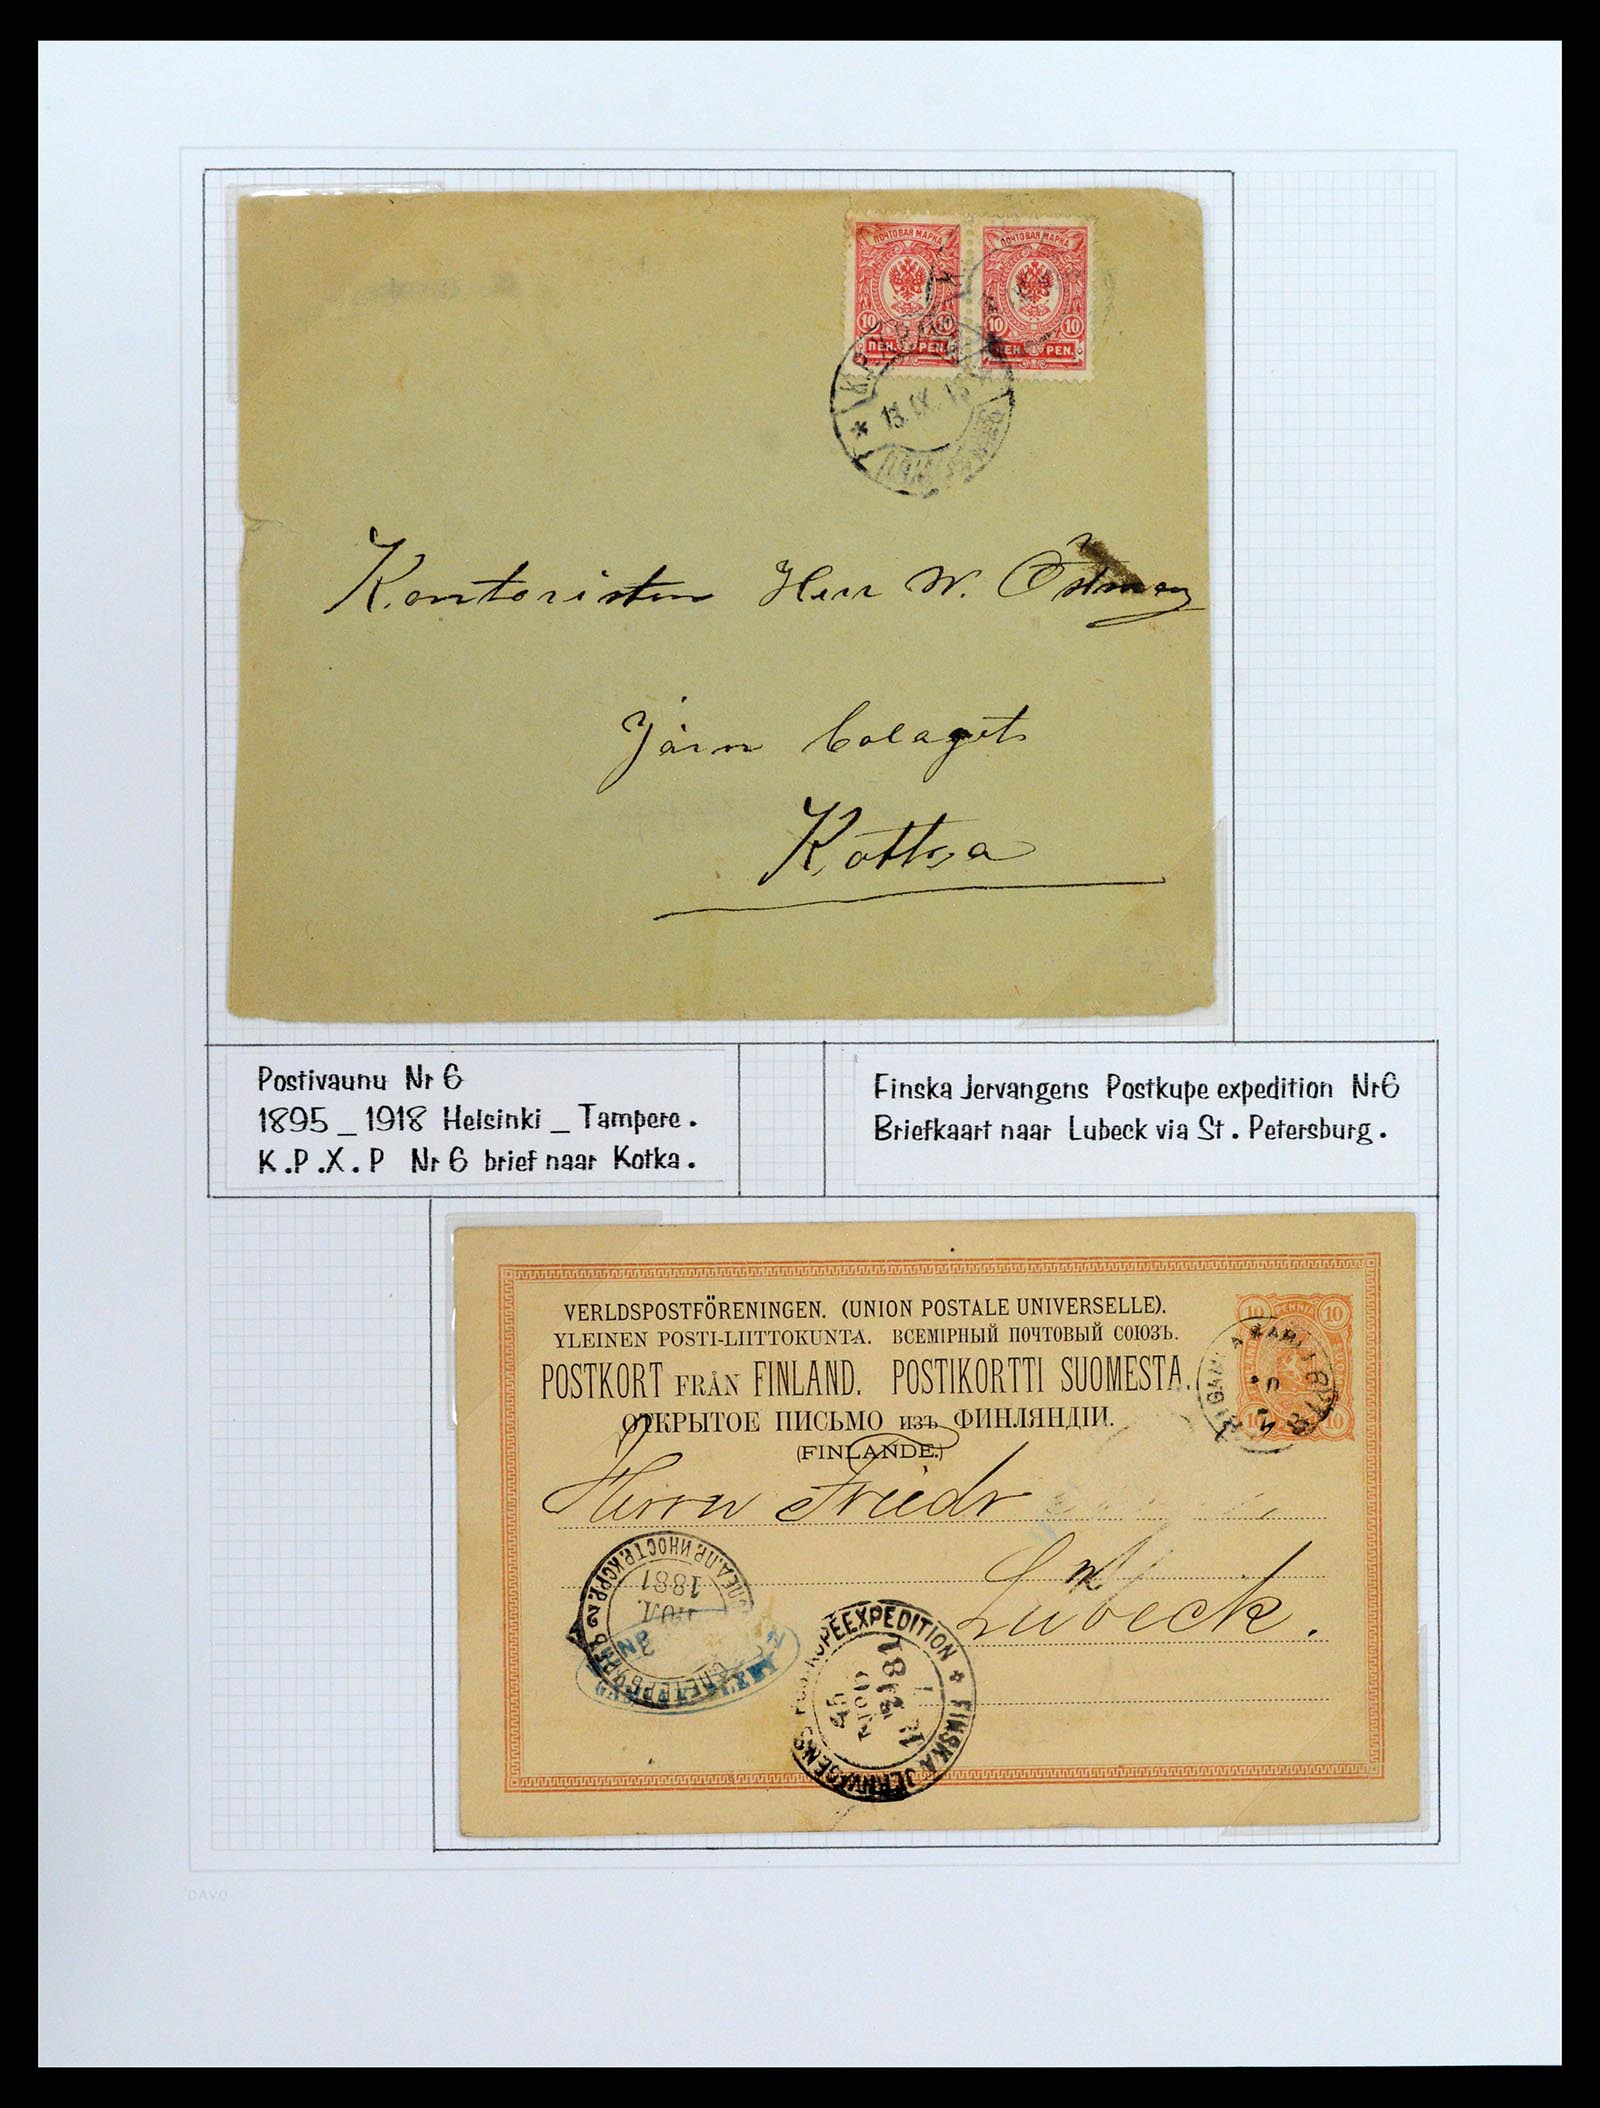 ПОЧТОВАЯ МАРКА ПОЧТОВАЯ МАРКА
10 10 10
ПЕН. PEN. ПЕН. PEN.
13.IX.13
Kontoristen Herr W. Östman
Järn bolaget
Kottka
Postivaunu Nr 6
1895 _ 1918 Helsinki _ Tampere .
K.P.X.P Nr 6 brief naar Kotka .
Finska Jervangens Postkupe expedition Nr6
Briefkaart naar Lubeck via St. Petersburg .
VERLDSPOSTFÖRENINGEN. (UNION POSTALE UNIVERSELLE).
YLEINEN POSTI-LIITTOKUNTA. ВСЕМІРНЫЙ ПОЧТОВЫЙ СОЮЗЪ.
POSTKORT FRÅN FINLAND. POSTIKORTTI SUOMESTA.
ОТКРЫТОЕ ПИСЬМО ИЗЪ ФИНЛЯНДІИ.
(FINLANDE.)
10 PENNIA 10
10 10
Herrn Friedr
Lübeck.
1881
ЮЛ.
FINSKA JERNVÄGENS POSTKUPÉEXPEDITION
1881
DAVO